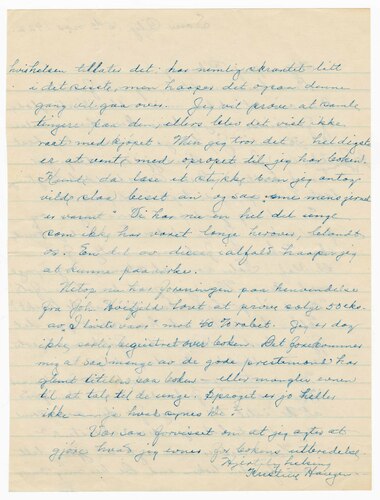 hvis helsen tillates det; har nemlig skrantet litt
i det siste, men haaper det ogsaa denne
gang vil gaa over. Jeg vil prøve at samle
tingere paa den, ellers blir det vist ikke
raat med kjøpet. Men jeg tror det heldigste
er at vente med opropet til jeg har boken.
Kunde da læse et stykke som jeg antog
vilde slaa best an og saa "sme mens jernet
er varmt". Vi har nu en hel del unge
som ikke har været længe herover, blandt
os. En del av disse ialfald haaper jeg
at kunne paavirke.
Netop nu har foreningen paa henvendelse
fra Joh. lovet at prøve sælge 50 eks.
av mot 40 % rabat. Jeg er dog
ikke særlig begeistret over boken. Det forekommer
mig at saa mange av de gode prestemænd har
glemt titelen paa boken — eller mangler evnen
til at tale til de unge. Sproget er jo heller
ikke — ja hvad synes De?
Vær saa forvisset om at jeg agter at
gjøre hvad jeg evner for bokens utbredelse.
Hjertelig hilsen
Kristine Haugen